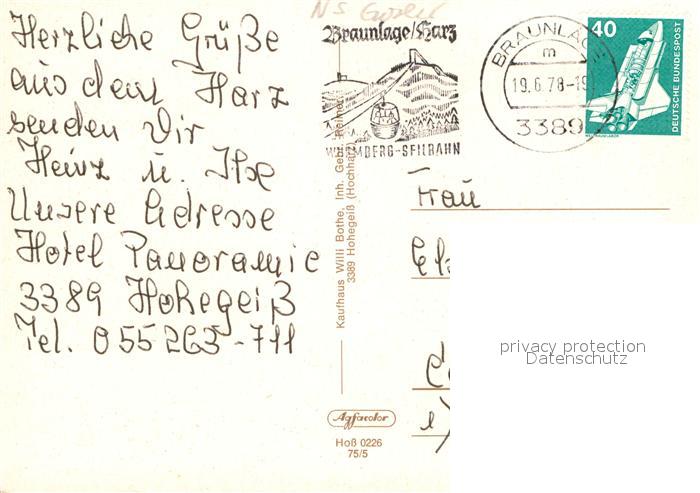 Herzliche Grüße
aus dem Harz
senden Dir
Heinz u. Ilse
Unsere Adresse
Hotel Panoramic
3389 Hohegeiß
Tel. 055263-711
Braunlage/Harz
WURMBERG-SEILBAHN
BRAUNLAGE
m
19.6.78-19
3389
40
DEUTSCHE BUNDESPOST
Kaufhaus Willi Bothe, Inh. Gebr.
3389 Hohegeiß (Hochharz)
Agfacolor
Hoß 0226
75/5
Frau
privacy protection
Datenschutz